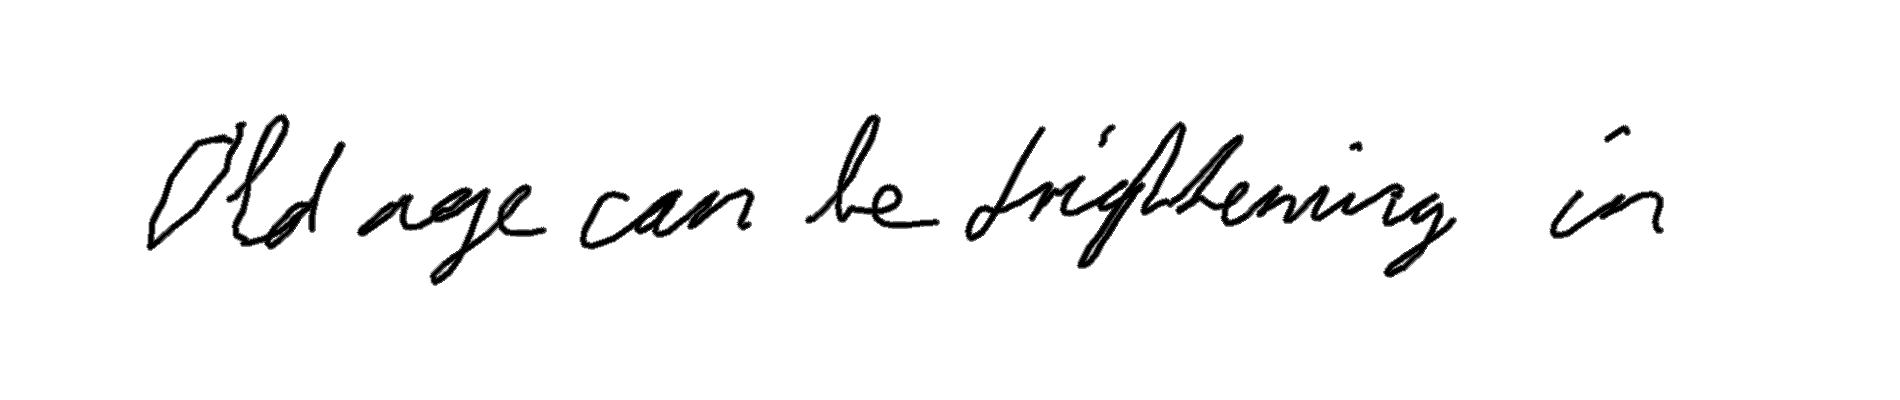 Old age can be frightening in